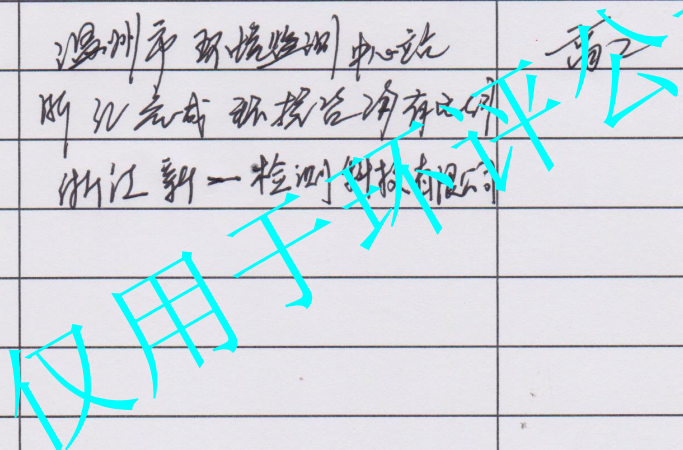 温州市环境监测中心站 高工
浙江 环境咨询有限公司
浙江新一检测科技有限公司
仅用于环评公